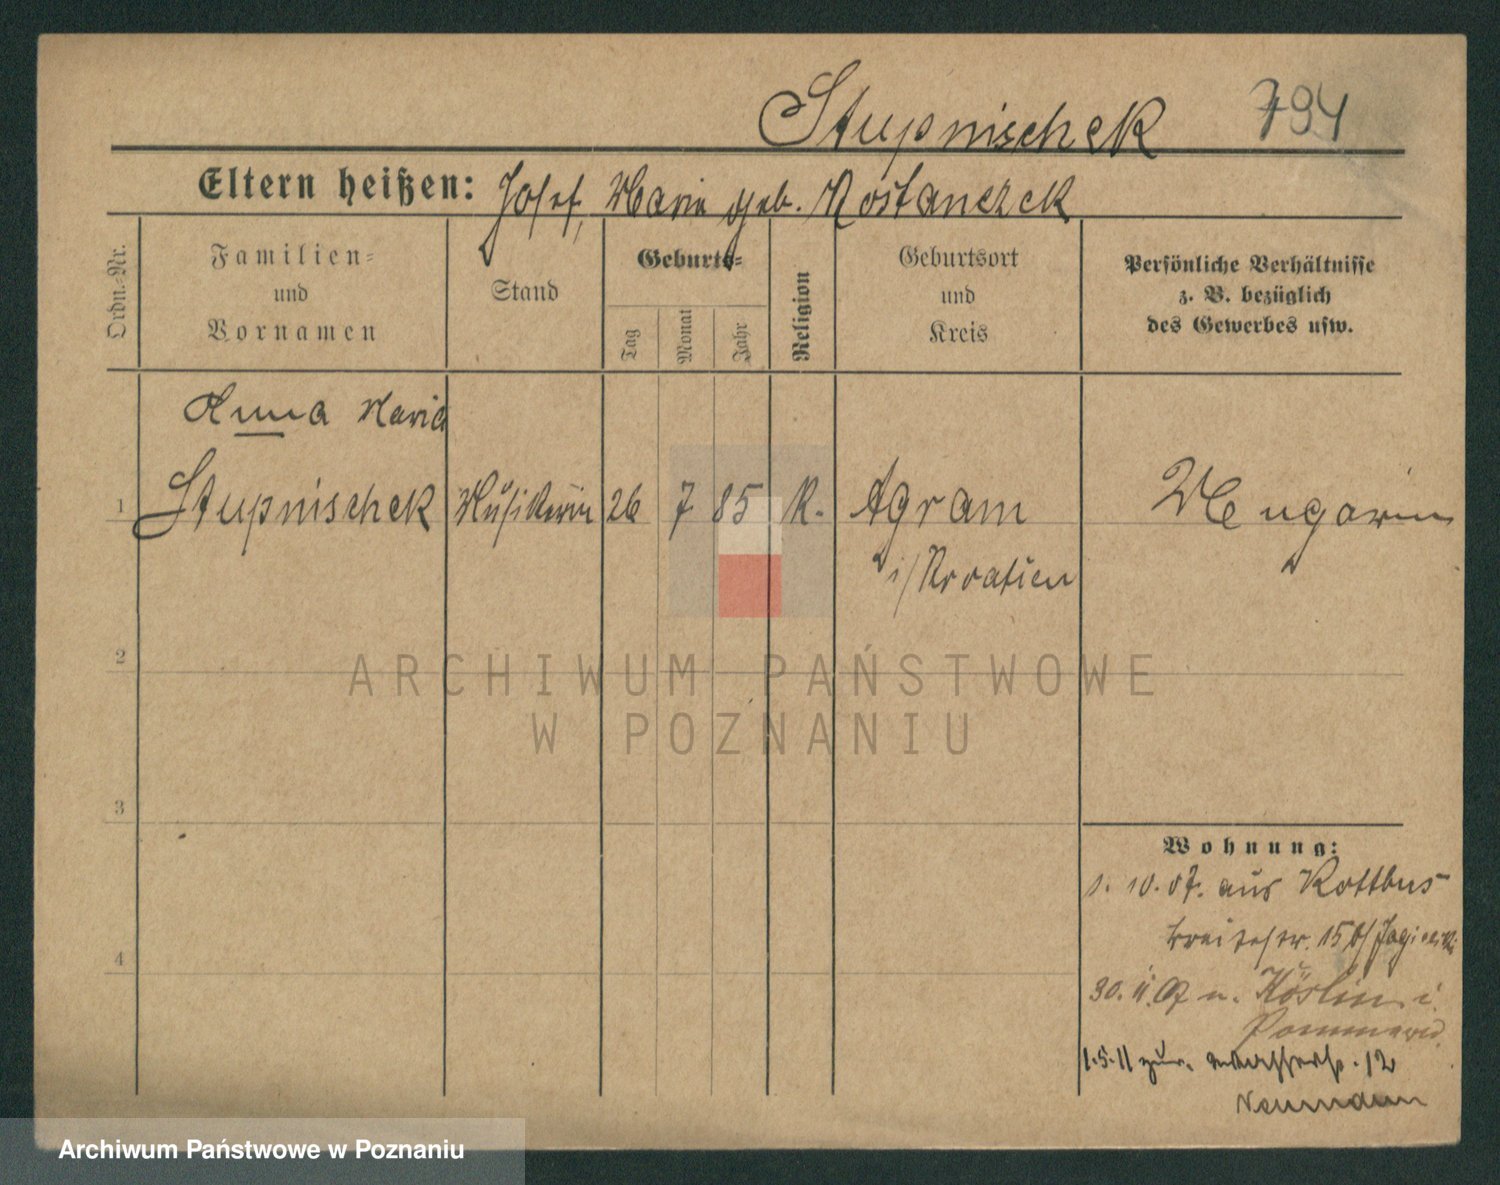 Stupnischek 794
Eltern heißen: Josef, Maria geb. Rostanczek
Ordn.-Nr.
Familien-
und
Vornamen
Stand
Geburts-
Tag
Monat
Jahr
Religion
Geburtsort
und
Kreis
Persönliche Verhältnisse
z. B. bezüglich
des Gewerbes usw.
Anna Maria
1 Stupnischek Musikerin 26 7 85 K. Agram Ungarin
i/Kroatien
2
ARCHIWUM PAŃSTWOWE
W POZNANIU
3
Wohnung:
1. 10. 07. aus Kottbus
Breitestr. 15 b/
4
30. 11. 07 n. Köslin i.
Pommern.
1.5.11 zur. Wasserstr. 12
Neumann
Archiwum Państwowe w Poznaniu